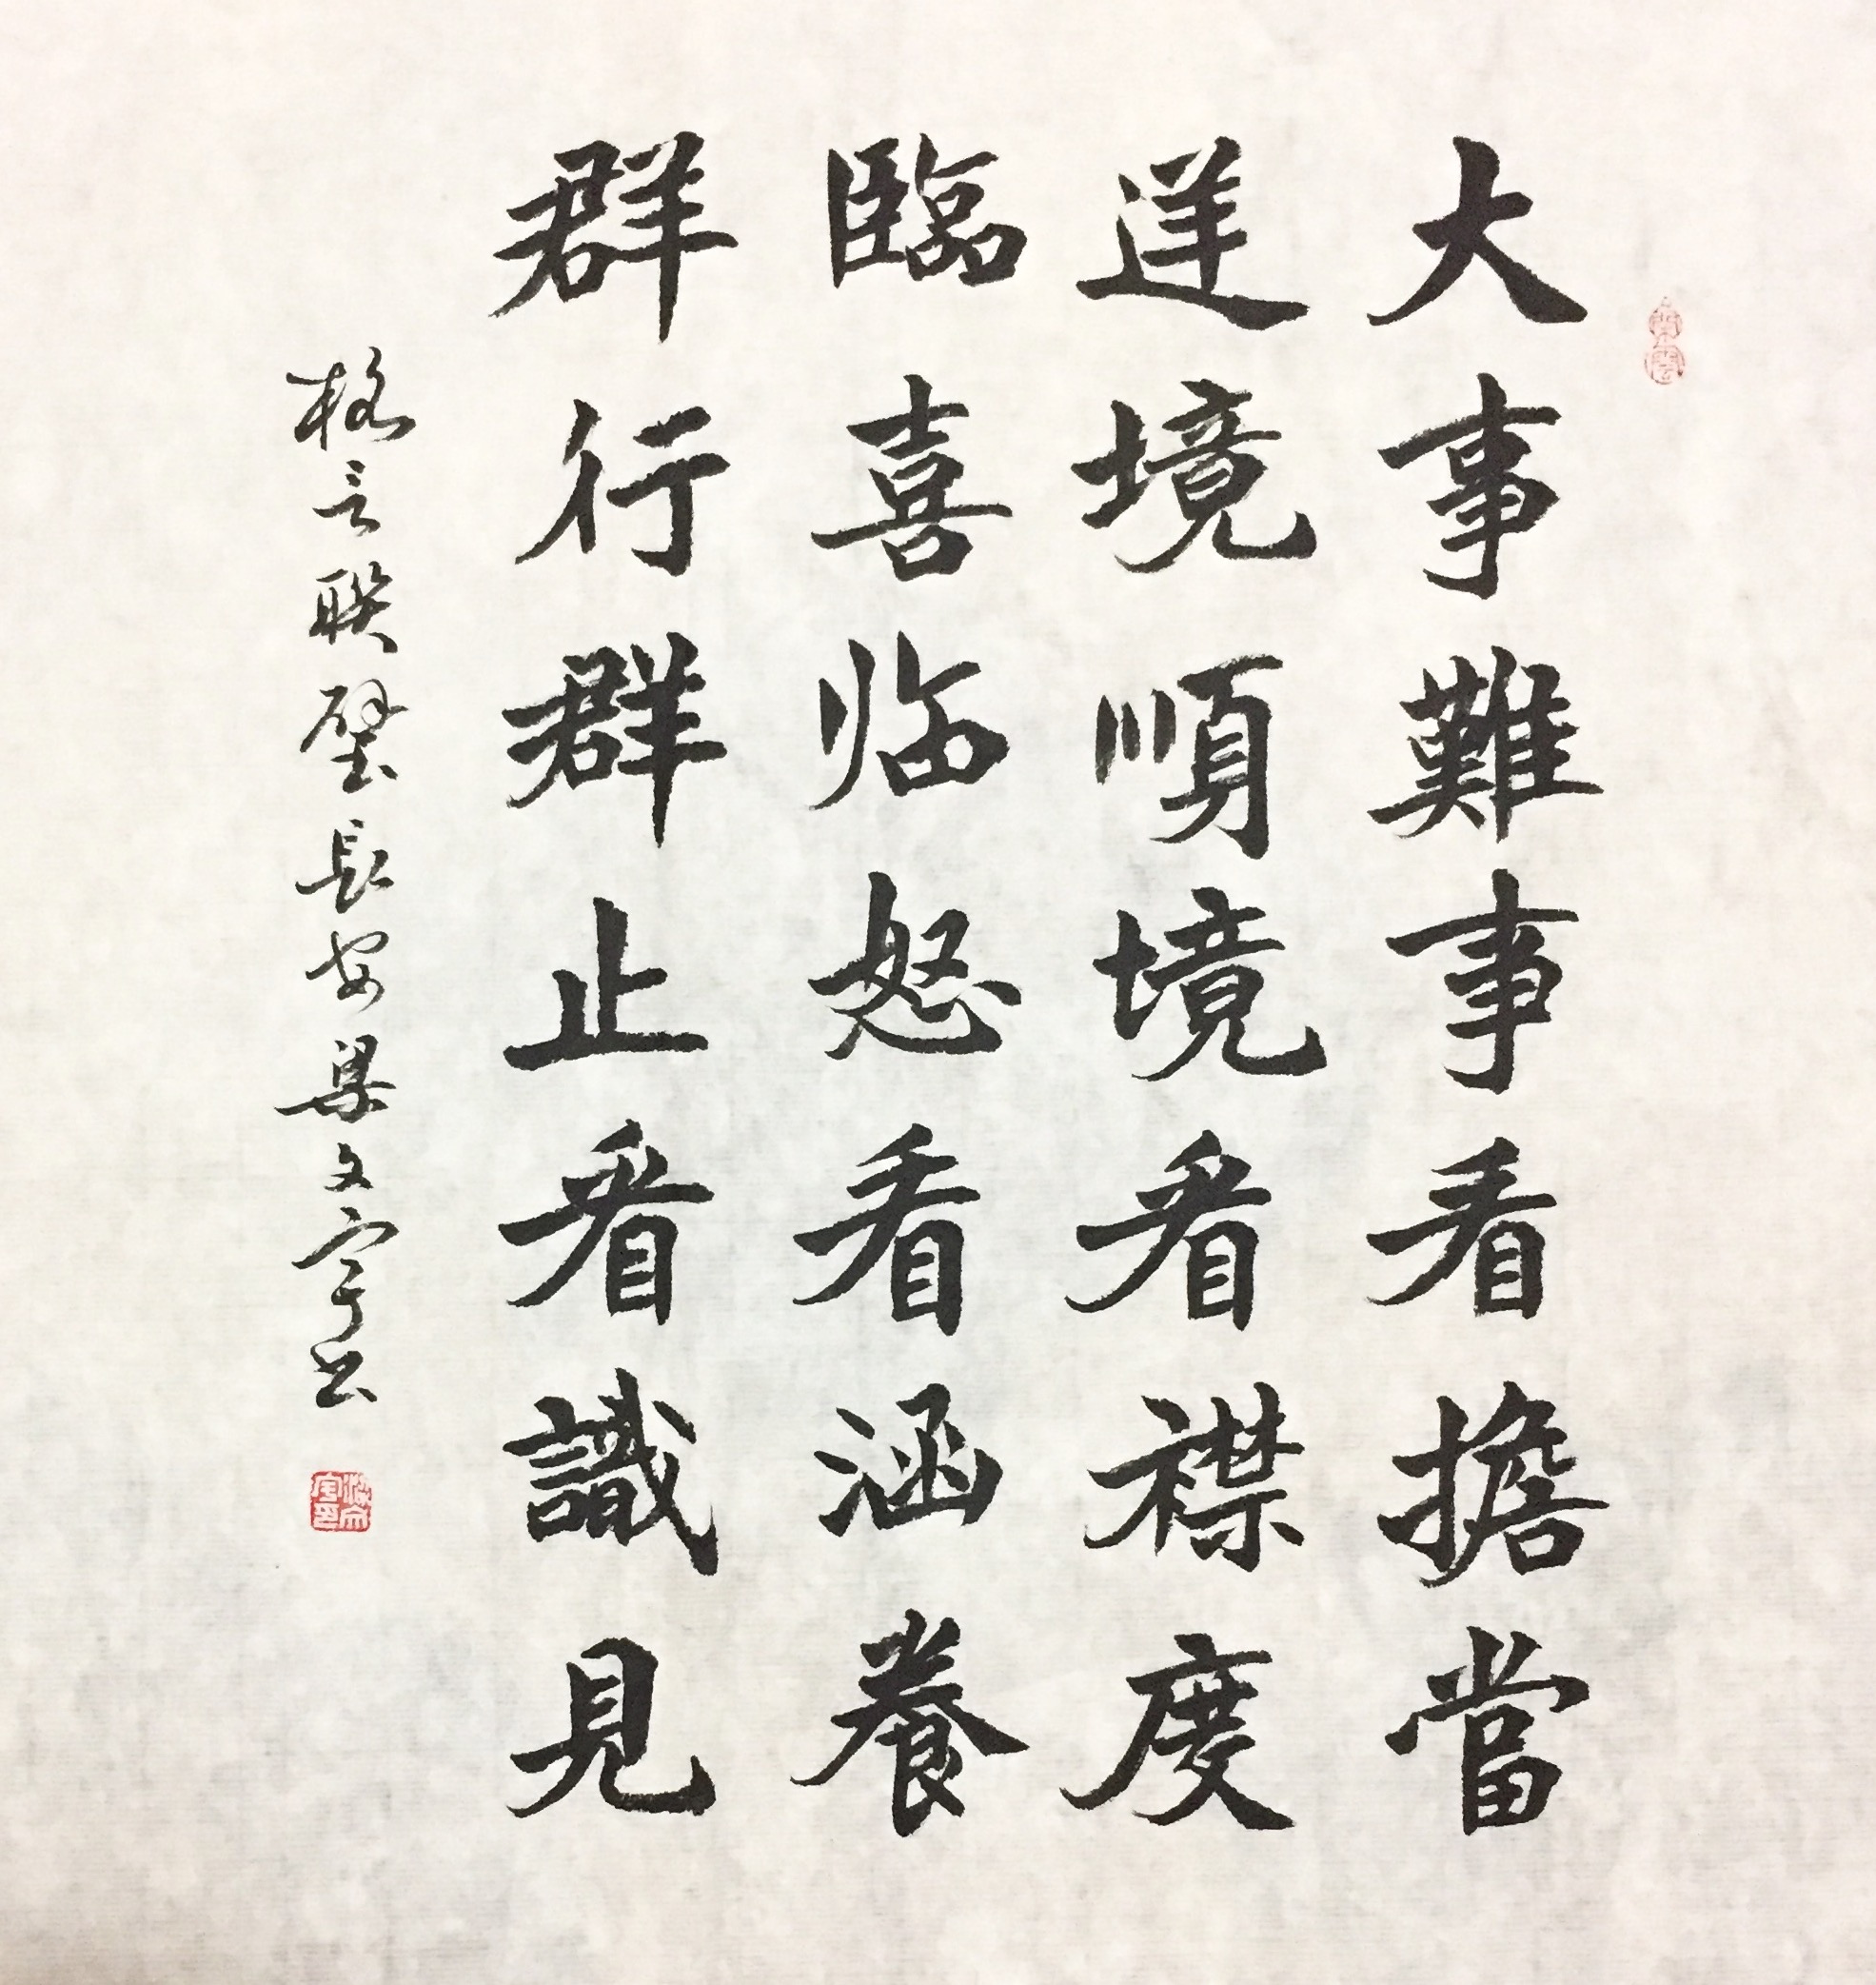 大事難事看擔當
逆境順境看襟度
臨喜临怒看涵養
群行群止看識見
格言聯璧長安梁文宇书
梁文宇印